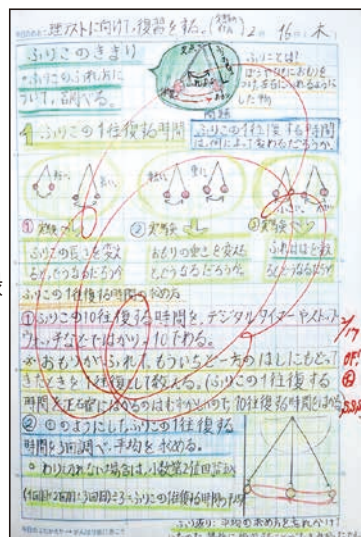 理テストに向けて、復習をする。
2 16 木
ふりこのきまり
・ふりこのふれ方に
ついて、調べる。
ふりことは?
つけ、左右にふれるように
した物
問題
1 ふりこの1往復する時間
ふりこの1往復する時間
は、何によって変わるだろうか。
短い 長い
軽い 重い
小さい
① 実験
② 実験
③
ふりこの長さを変え
ると、どうなるだろうか
おもりの重さを変える
とどうなるだろうか
ふれはばを変え
るとどうなるだろうか
ふりこの1往復する時間の求め方
①ふりこの10往復する時間を、デジタルタイマーやストップ
ウォッチなどではかり、10でわる。
※おもりがふれて、もういちど一方のはしにもどって
きたときを1往復として数える。(ふりこの1往復する
時間を正確にはかるのはむずかしいので、10往復する時間をはかる。
② ①のようにしたふりこの1往復する
時間を3回調べ、平均を求める。
○わりきれない場合は、小数第2位を四捨五入
(1回目+2回目+3回目)÷3=ふりこの1往復する時間の平均
2/17
ふり返り:平均の求め方を忘れかけて